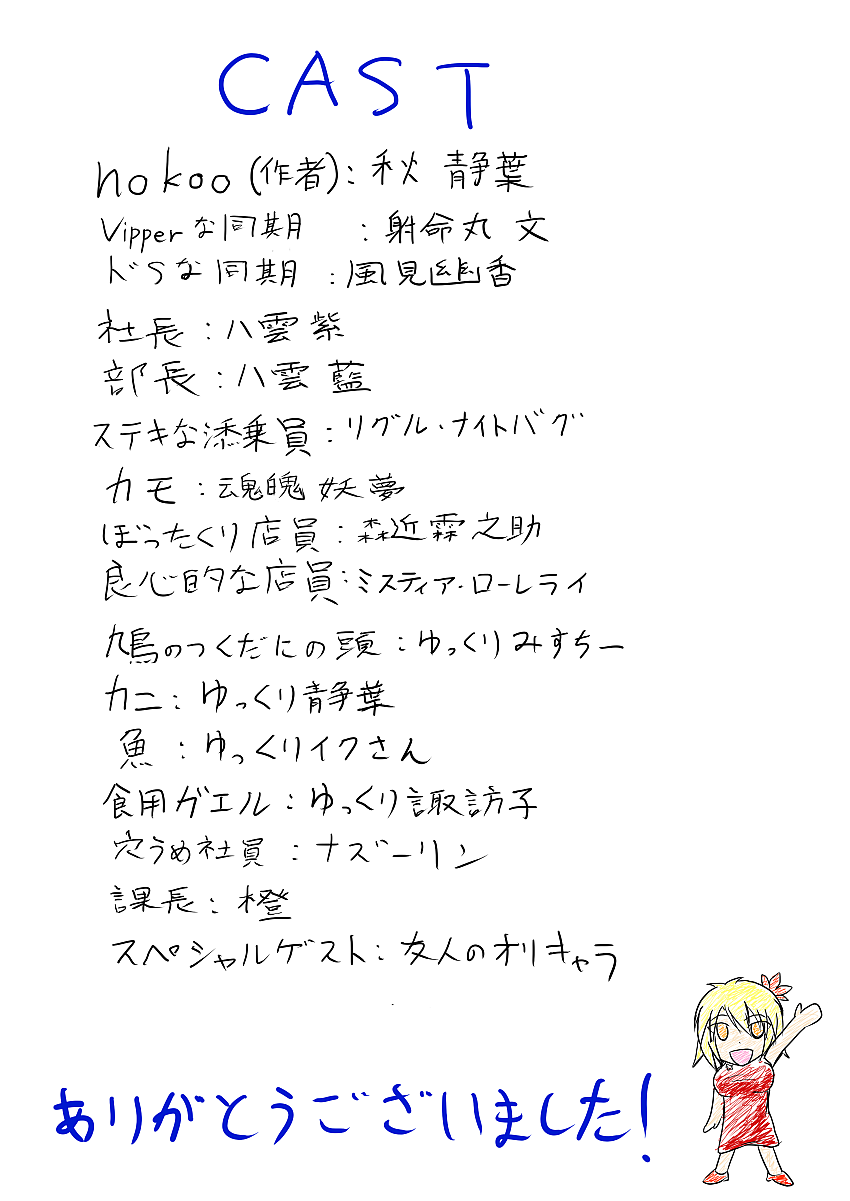 CAST
nokoo(作者):秋 静葉
Vipperな同期 :射命丸 文
ドSな同期 :風見幽香
社長:八雲 紫
部長:八雲 藍
ステキな添乗員:リグル・ナイトバグ
カモ:魂魄 妖夢
ぼったくり店員:森近霖之助
良心的な店員:ミスティア・ローレライ
鳩のつくだにの頭:ゆっくりみすちー
カニ:ゆっくり静葉
魚:ゆっくりイクさん
食用ガエル:ゆっくり諏訪子
穴うめ社員:ナズーリン
課長:橙
スペシャルゲスト:友人のオリキャラ
ありがとうございました!